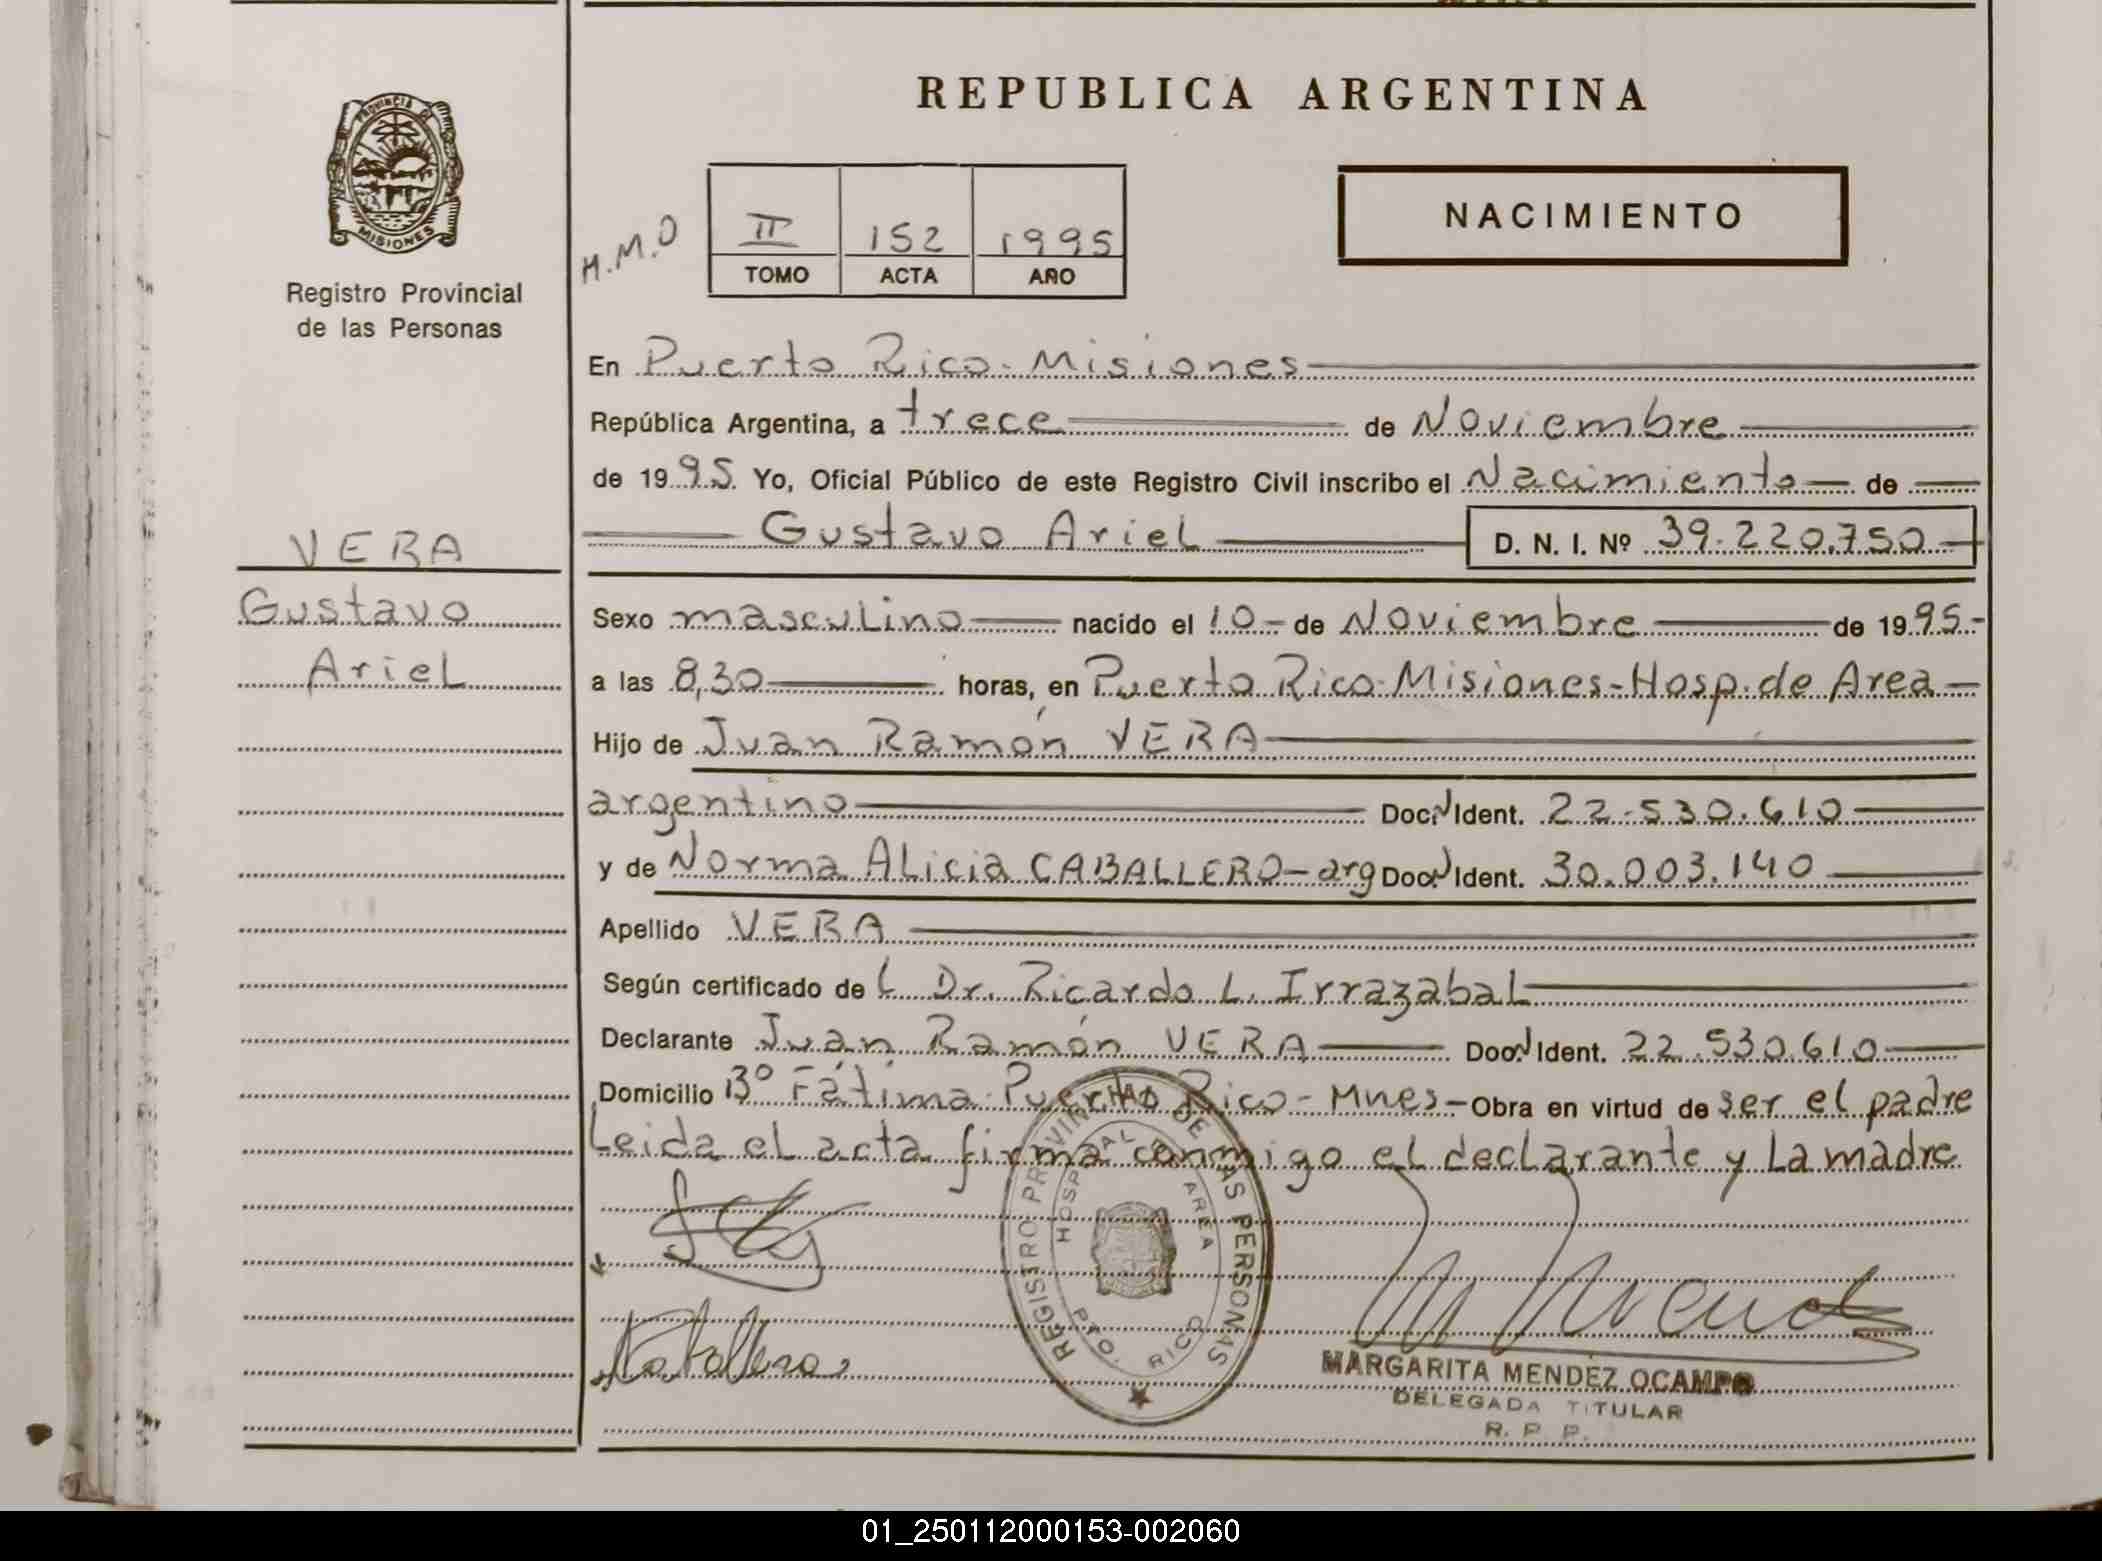 REPUBLICA ARGENTINA
PROVINCIA DE
MISIONES
Registro Provincial
de las Personas
H.M.O
II 152 1995
TOMO ACTA AÑO
NACIMIENTO
En Puerto Rico - Misiones
República Argentina, a trece de Noviembre
de 1995. Yo, Oficial Público de este Registro Civil inscribo el Nacimiento de
Gustavo Ariel D. N. I. Nº 39.220.750
VERA
Gustavo
Ariel
Sexo masculino nacido el 10 de Noviembre de 1995.
a las 8,30 horas, en Puerto Rico-Misiones-Hosp. de Area
Hijo de Juan Ramón VERA
argentino Doc. N Ident. 22.530.610
y de Norma Alicia CABALLERO - arg Doc. N Ident. 30.003.140
Apellido VERA
Según certificado del Dr. Ricardo L. Irrazabal
Declarante Juan Ramón VERA Doc. N Ident. 22.530.610
Domicilio Bº Fátima Puerto Rico - Mnes - Obra en virtud de ser el padre
Leida el acta firma conmigo el declarante y la madre
REGISTRO PROVINCIAL DE LAS PERSONAS
HOSPITAL DE AREA
PTO. RICO
MARGARITA MENDEZ OCAMPO
DELEGADA TITULAR
R. P. P.
01_250112000153-002060